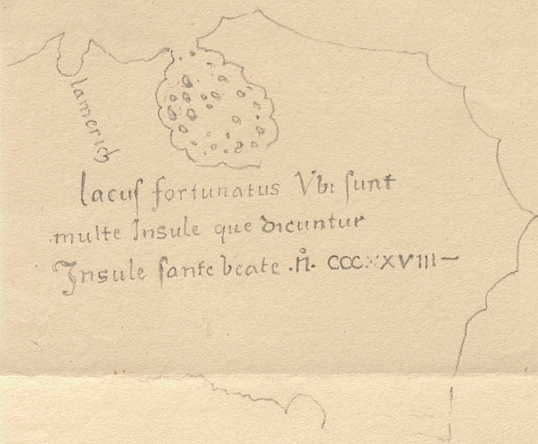 lamerich
lacuſ fortunatus Vbi ſunt
multe Insule que dicuntur
Insule ſante beate .n̊. cccxxviii